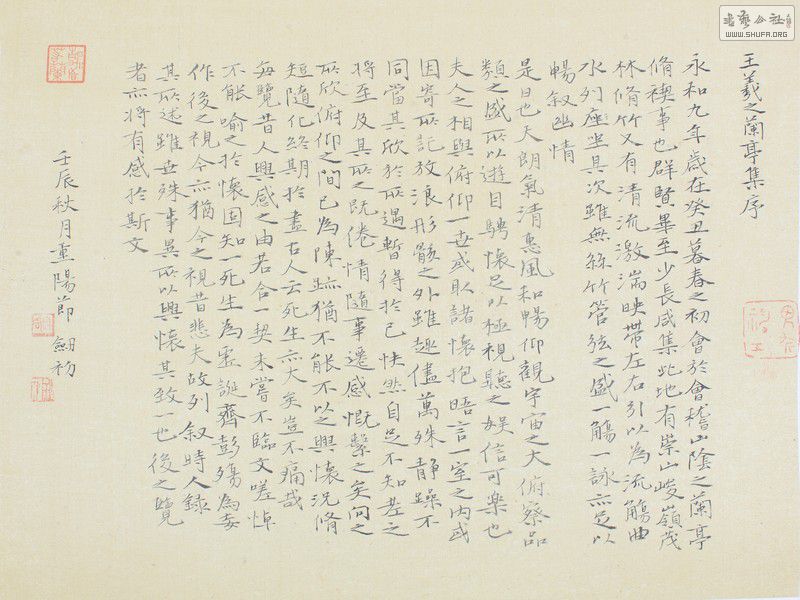 王羲之蘭亭集序
永和九年歲在癸丑暮春之初會於會稽山陰之蘭亭
脩禊事也群賢畢至少長咸集此地有崇山峻嶺茂
林脩竹又有清流激湍映帶左右引以為流觴曲
水列座坐其次雖無絲竹管弦之盛一觴一詠亦足以
暢叙幽情
是日也天朗氣清惠風和暢仰觀宇宙之大俯察品
類之盛所以遊目騁懷足以極視聽之娛信可樂也
夫人之相與俯仰一世或取諸懷抱晤言一室之內或
因寄所記放浪形骸之外雖趣儘萬殊靜躁不
同當其欣於所遇暫得於己快然自足不知老之
將至及其所之既倦情隨事遷感慨繫之矣向之
所欣俯仰之間已為陳跡猶不能不以之興懷況脩
短隨化終期於盡古人云死生亦大矣豈不痛哉
每覽昔人興感之由若合一契未嘗不臨文嗟悼
不能喻之於懷固知一死生為虛誕齊彭殤為妄
作後之視今亦猶今之視昔悲夫故列叙時人錄
其所述雖世殊事異所以興懷其致一也後之覽
者亦將有感於斯文
壬辰秋月重陽節 劒初
書藝公社
WWW.SHUFA.ORG